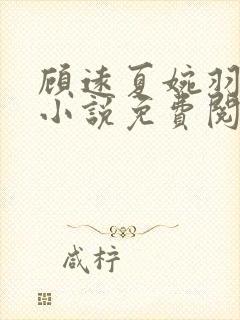 顾逺夏婉羽
小説免費閱
咸柠